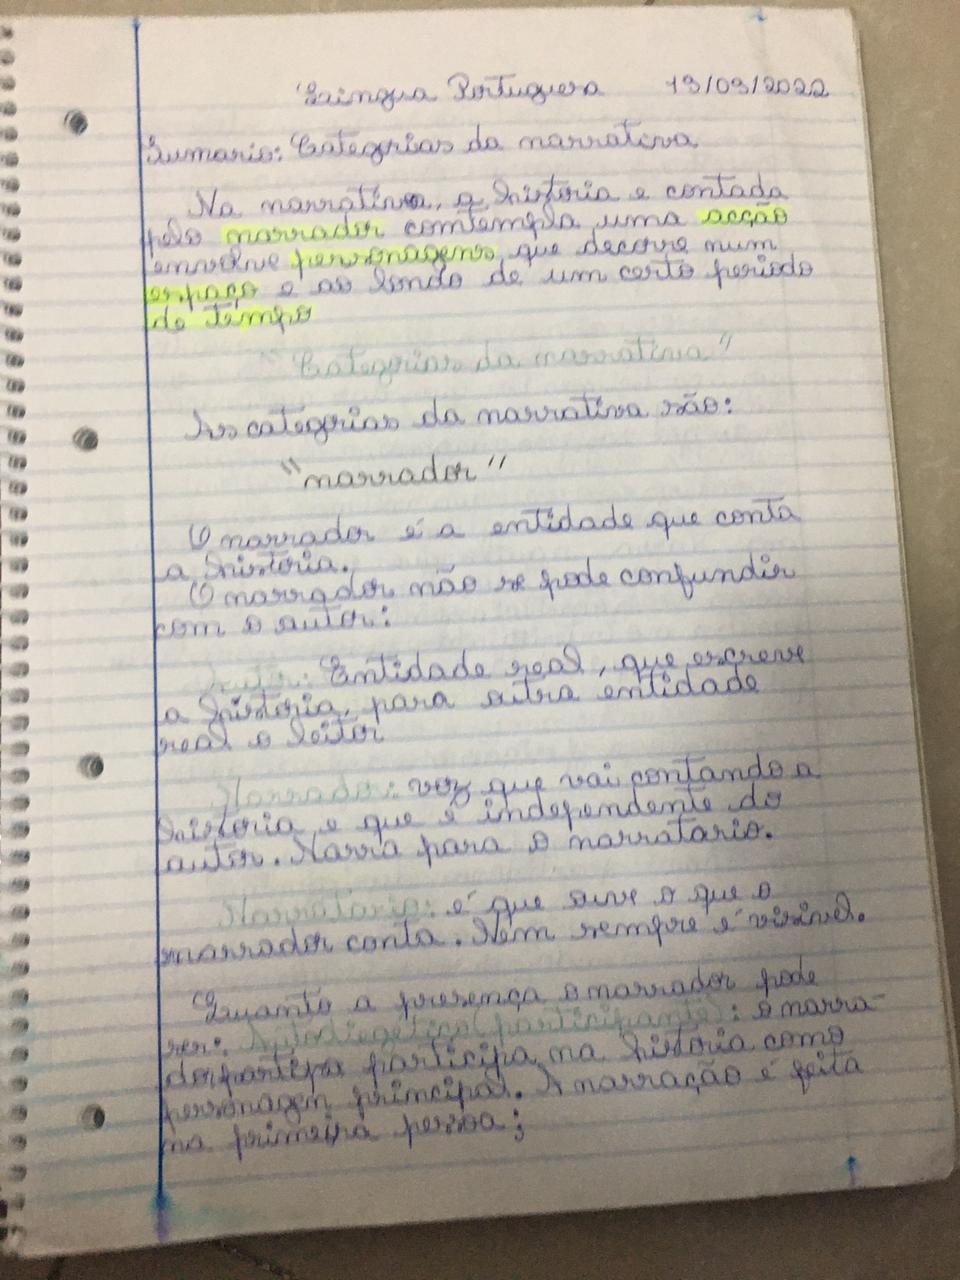 Lingua Portuguesa 13/03/2022
Sumario: Categorias da narrativa
Na narrativa, a historia e contada
pelo narrador comtempla uma acção
envolve personagens, que decorre num
espaço e ao londo de um certo periodo
de tempo
"Categorias da narrativa"
As categorias da narrativa são:
"narrador"
O narrador é a entidade que conta
a historia.
O narrador não se pode confundir
com o autor:
Autor: Entidade real, que escreve
a historia, para outra entidade
real o leitor
Narrador: voz que vai contando a
historia e que é independente do
autor. Narra para o narratario.
Narratario: é que ouve o que o
narrador conta. Nem sempre é visivel.
Quanto a presença o narrador pode
ser: Autodiegetico (participante): o narra-
dor participa na historia como
personagem principal. A narração é feita
na primeira pessoa;